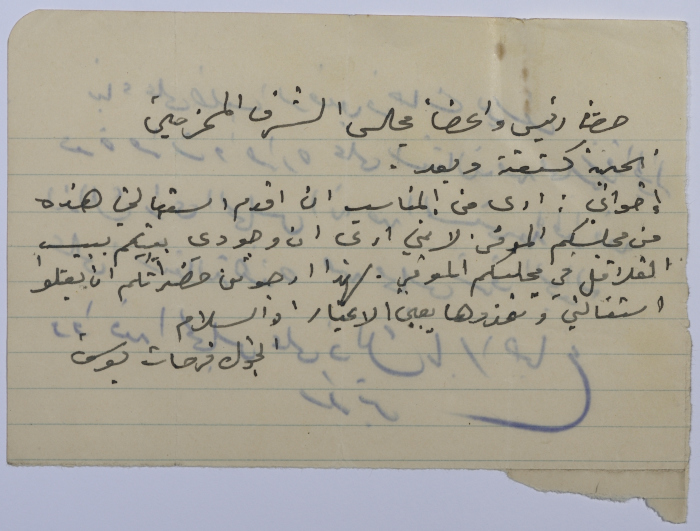 حضرة رئيس واعضاء مجلس الشرف المحترمين
تحية كشفية وبعد :
إخواني : ارى من المناسب ان اقدم استقالتي هذه
من مجلسكم الموقر. لانني ارى ان وجودي بينكم يسبب
القلاقل في مجلسكم الموقر. لهذا ارجو من حضراتكم ان يقبلوا
استقالتي وتنفذوها بعين الاعتبار والسلام
فرحات يوسف